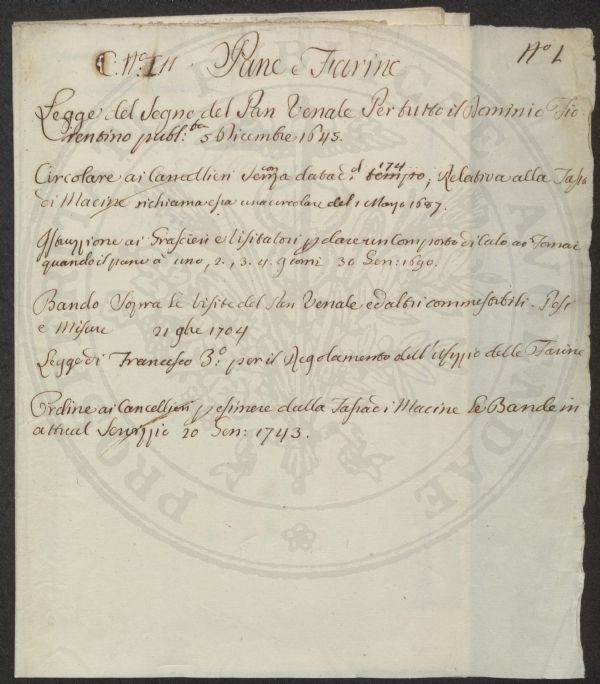 C. N.o III Pane e Farine N.o 1
Legge del Segno del Pan Venale Per tutto il Dominio Fio-
rentino publ.ta 5 Dicembre 1645.
Circolare ai Cancellieri senza data
Relativa alla Tassa
di Macine richiama una circolare del 1 Mago 1687.
Istruzzione ai Grascieri e Visitatori p dare un Comporto di Calo ao Fornai
quando il pane à uno, 2., 3. 4. giorni 30 Gen: 1690.
Bando Sopra le Visite del Pan Venale ed altri commestibili. Pesi
e Misure 21 gbre 1704
Legge di Francesco 3.o per il Regolamento dell'Ufizzio delle Farine
Ordine ai Cancellieri p esimere dalla Tassa di Macine le Bande in
attual Servizzio 20 Gen: 1743.